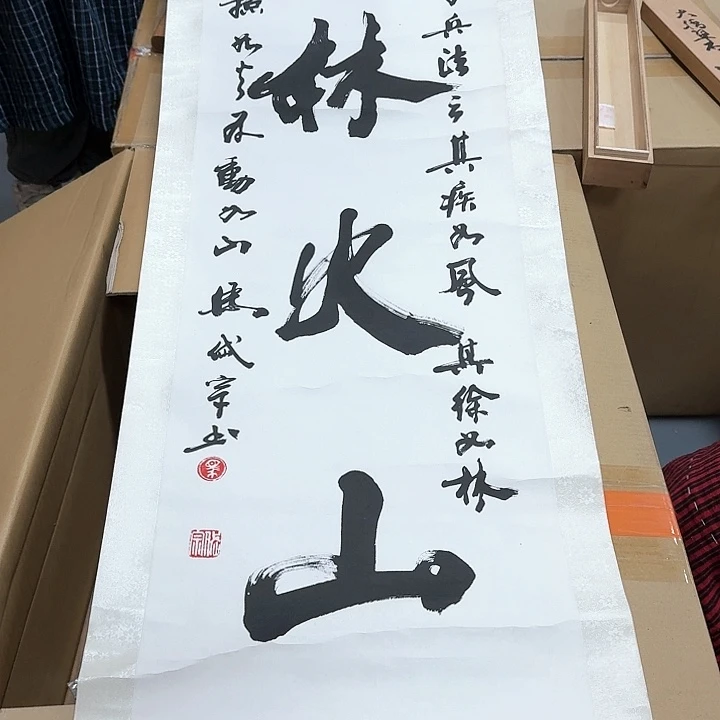 兵法云其疾如風其徐如林
林火山
掠如火不動如山
宗书